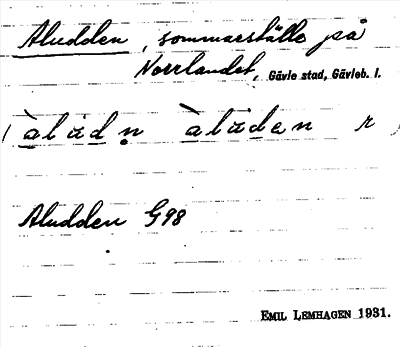 Aludden, sommarställe på
Norrlandet, Gävle stad, Gävleb. l.
Aludden G98
EMIL LEMHAGEN 1931.